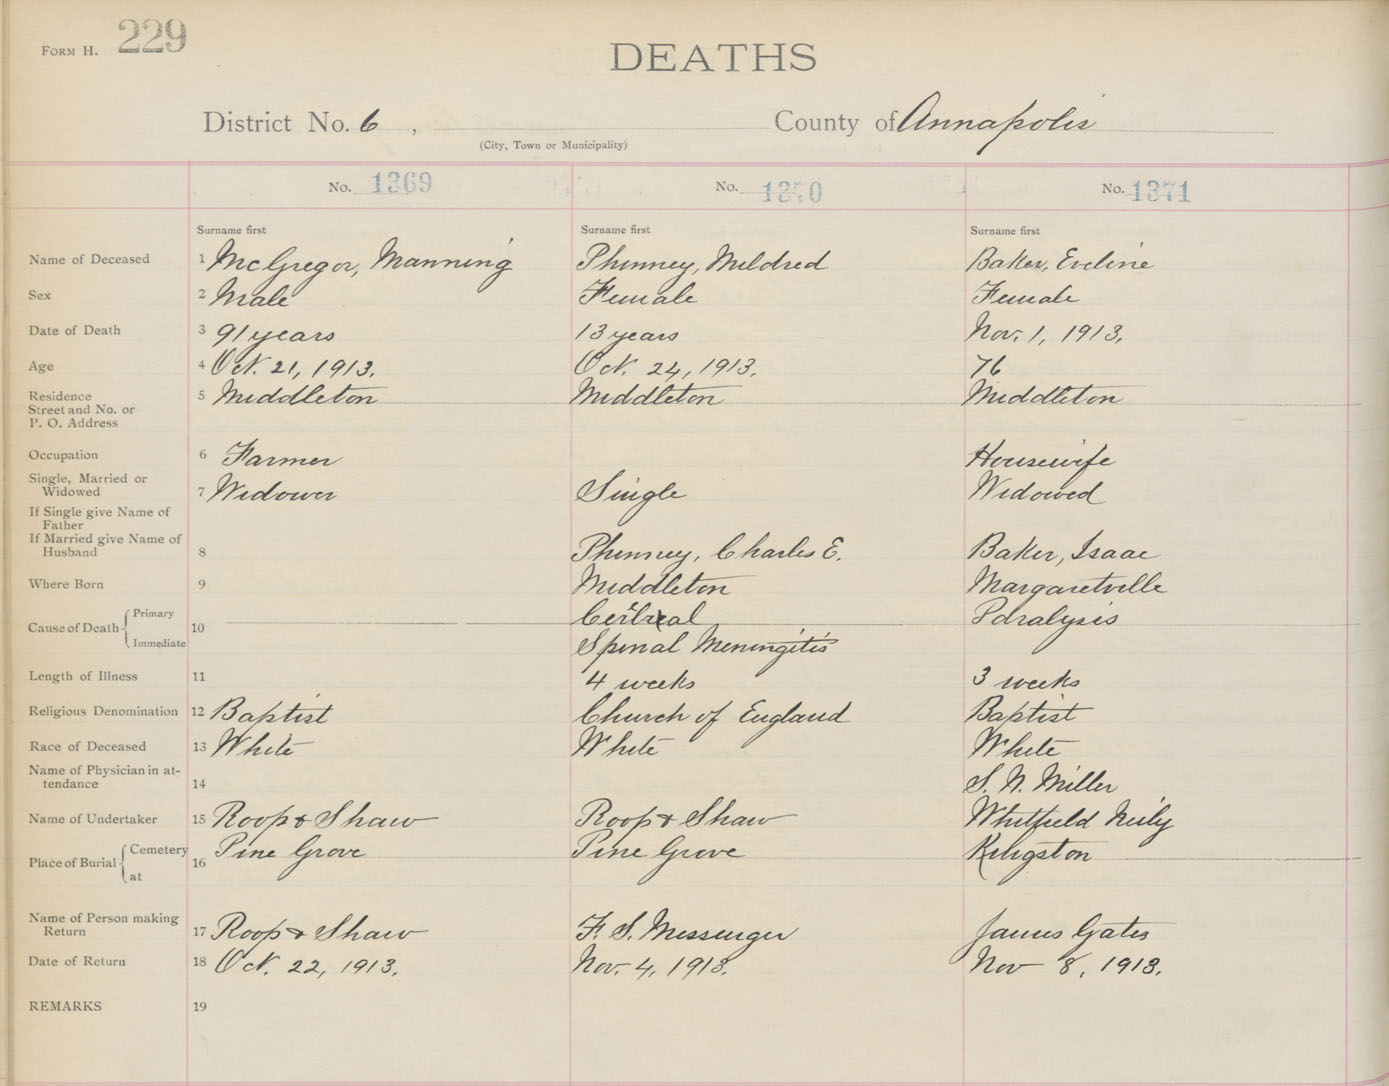 FORM H. 229
DEATHS
District No. 6 , County of Annapolis
(City, Town or Municipality)
No. 1369 No. 1370 No. 1371
Surname first Surname first Surname first
Name of Deceased 1 McGregor, Manning Phinney, Mildred Baker, Eveline
Sex 2 Male Female Female
Date of Death 3 91 years 13 years Nov. 1, 1913.
Age 4 Oct. 21, 1913. Oct. 24, 1913. 76
Residence 5 Middleton Middleton Middleton
Street and No. or
P. O. Address
Occupation 6 Farmer Housewife
Single, Married or
Widowed 7 Widower Single Widowed
If Single give Name of
Father
If Married give Name of
Husband 8 Phinney, Charles E. Baker, Isaac
Where Born 9 Middleton Margaretville
Primary Paralysis
Cause of Death 10
Immediate Spinal Meningitis
Length of Illness 11 4 weeks 3 weeks
Religious Denomination 12 Baptist Church of England Baptist
Race of Deceased 13 White White White
Name of Physician in at-
tendance 14 S. N. Miller
Name of Undertaker 15 Roop & Shaw Roop & Shaw Whitfield Neily
Cemetery Pine Grove Pine Grove Kingston
Place of Burial 16
at
Name of Person making
Return 17 Roop & Shaw F. S. Messenger James Gates
Date of Return 18 Oct. 22, 1913. Nov. 4, 1913. Nov 8, 1913.
REMARKS 19